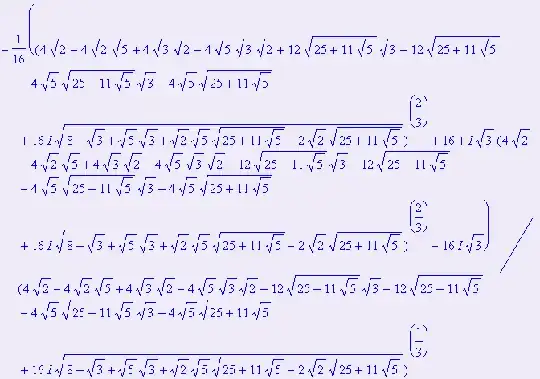 -1/16 ( (4√2 - 4√2√5 + 4√3√2 - 4√5√3√2 + 12√(25+11√5) √3 - 12√(25+11√5)
4√5√(25-11√5) √3 4√5√(25+11√5)
+ 16 I √(8 - √3 + √5√3 + √2√5√(25+11√5) - 2√2√(25+11√5)) )^(2/3) 16 + I√3 (4√2
4√2√5 + 4√3√2 4√5√3√2 12√(25 11√5) √3 12√(25 11√5)
- 4√5√(25-11√5) √3 - 4√5√(25+11√5)
+ 16 I √(8 - √3 + √5√3 + √2√5√(25+11√5) - 2√2√(25+11√5)) )^(2/3) - 16 I√3 ) /
(4√2 - 4√2√5 + 4√3√2 - 4√5√3√2 - 12√(25-11√5) √3 - 12√(25-11√5)
- 4√5√(25-11√5) √3 - 4√5√(25+11√5)
+ 16 I √(8 - √3 + √5√3 + √2√5√(25+11√5) - 2√2√(25+11√5)) )^(1/3)